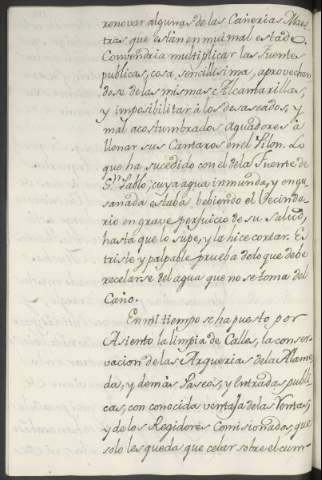 renovar algunas de las Cañerias Maes
tras que están en mui mal estado.
Convendria multiplicar las fuentes
publicas, cosa sencilisima, aprovechan
dose de las mismas Alcantarillas,
y imposibilitar à los desaseados, y
mal acostumbrados Aguadores à
llenar sus Cantaros en el Pilon. Lo
que ha sucedido con el de la fuente de
Sn. Pablo, cuya agua inmunda, y engu
sanada estaba, bebiendo el Vecinda
rio en grave perjuicio de su Salud,
hasta que lo supe, y la hice cortar. Es
triste y palpable prueba de lo que debe
recelarse del agua que no se toma del
Caño.
En mi tiempo se ha puesto por
Asiento la limpia de Calles, la conser
vacion de las Arquerias de la Alame
da, y demás Paseos, y Entradas publi
cas, con conocida ventaja de las Rentas,
y de los Regidores Comisionados, que
solo les queda que celar sobre el cum-